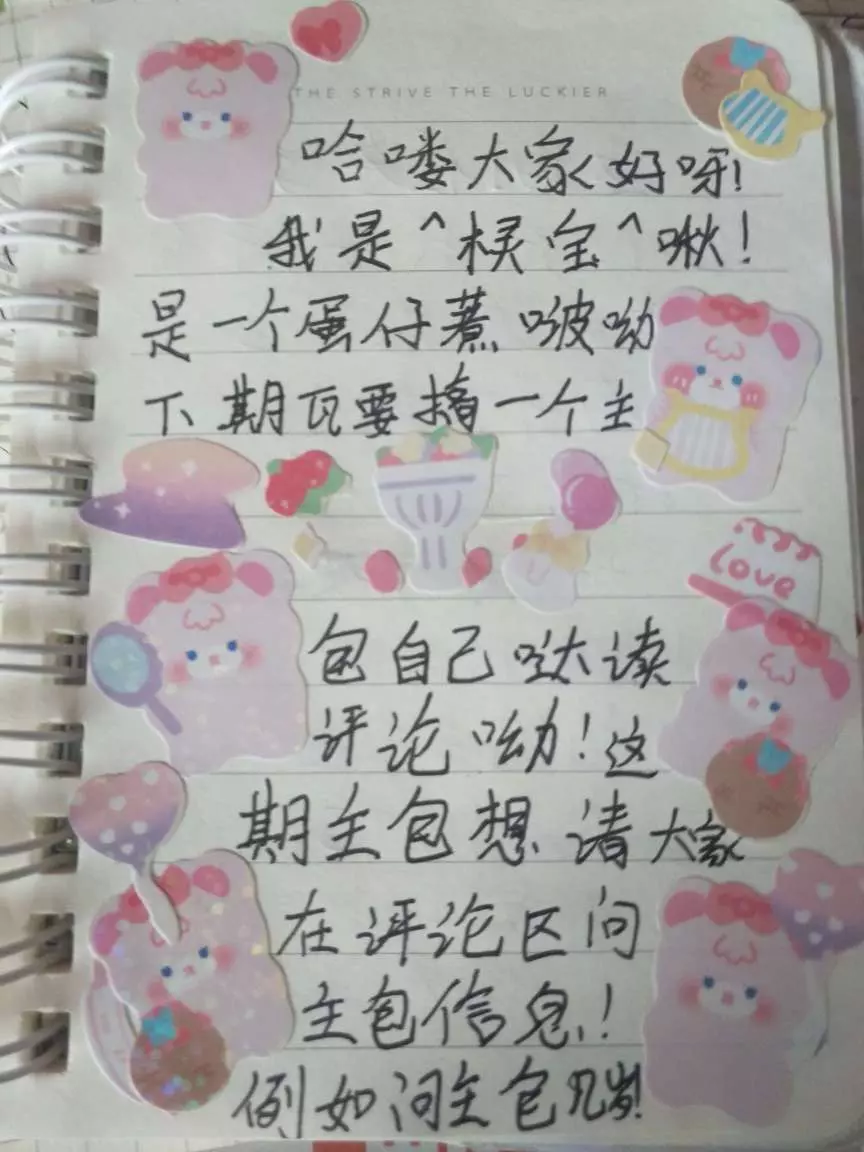 THE STRIVE THE LUCKIER
哈喽大家好呀!
我是^棂宝^啾!
是一个蛋仔薯啵呦
下期瓦要搞一个主
love
包自己哒读
评论呦!这
期主包想请大家
在评论区问
主包信息!
例如问主包几岁!